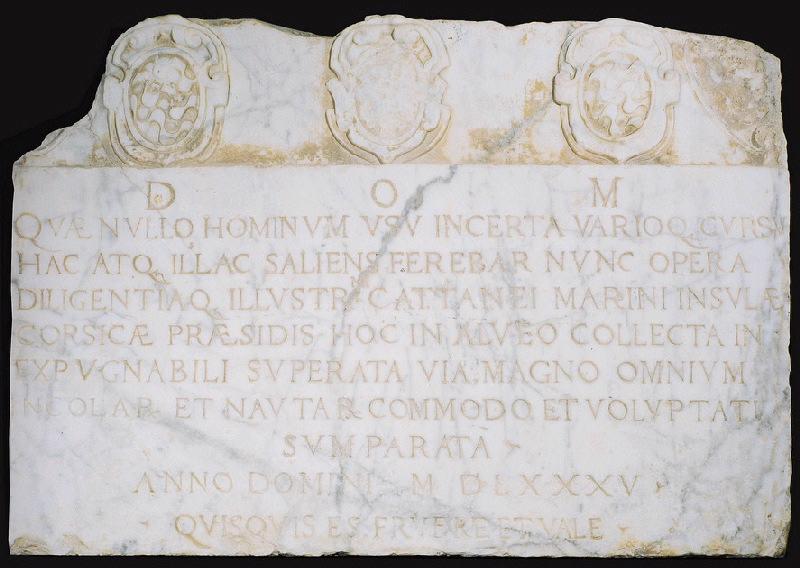 D O M
QVÆ NVLLO HOMINVM VSV INCERTA VARIOQ CVRSV
HAC ATQ ILLAC SALIENS FEREBAR NVNC OPERA
DILIGENTIAQ ILLVSTR CATTANEI MARINI INSVLÆ
CORSICÆ PRÆSIDIS HOC IN ALVEO COLLECTA IN
EXPVGNABILI SVPERATA VIA MAGNO OMNIVM
INCOLAR ET NAVTAR COMMODO ET VOLVPTATI
SVM PARATA
ANNO DOMINI M D LXXXV
QVISQVIS ES FRVERE ET VALE